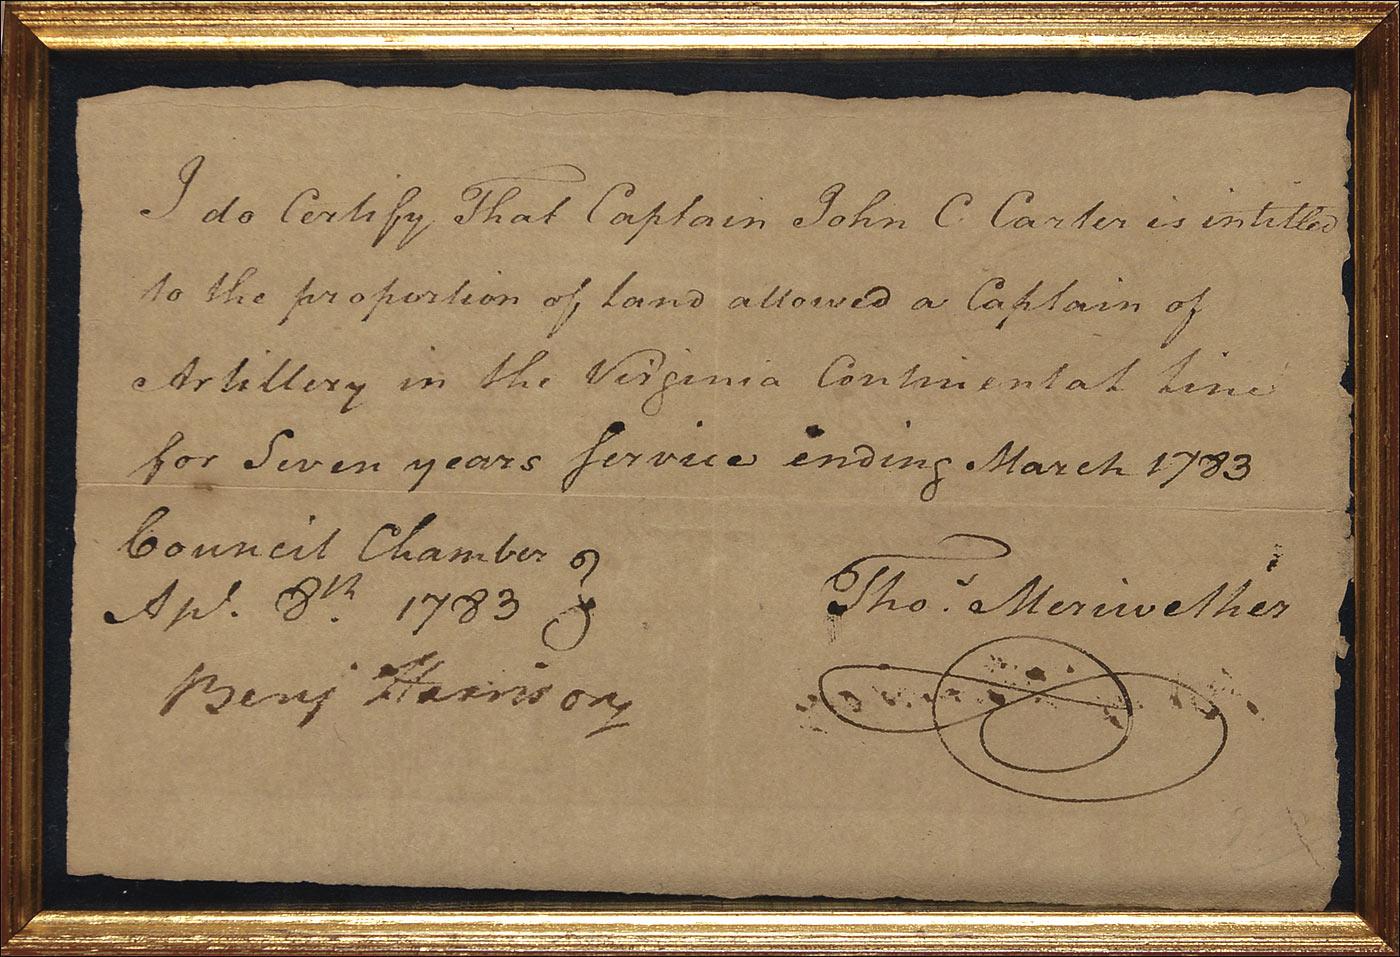 I do Certify That Captain John C. Carter is intitled
to the proportion of land allowed a Captain of
Artillery in the Virginia Continental Line
for Seven years Service ending March 1783
Council Chamber }
Apl. 8th. 1783 }
Thos. Meriwether
Benj Harrison